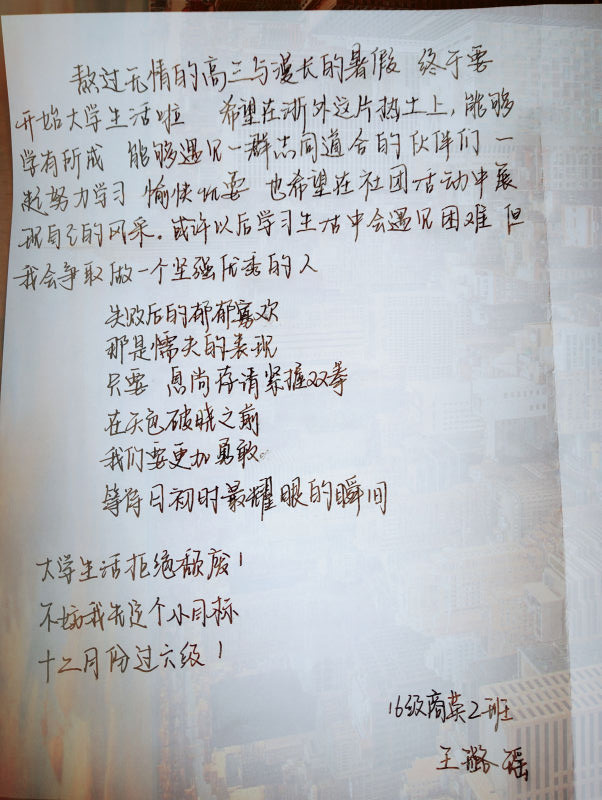 熬过无情的高三与漫长的暑假 终于要
开始大学生活啦 希望在浙外这片热土上，能够
学有所成 能够遇见一群志同道合的伙伴们 一
起努力学习 愉快玩耍 也希望在社团活动中展
现自己的风采。或许以后学习生活中会遇见困难 但
我会争取做一个坚强优秀的人
失败后的郁郁寡欢
那是懦夫的表现
只要一息尚存请紧握双拳
在天色破晓之前
我们要更加勇敢。
等待日初时最耀眼的瞬间
大学生活拒绝颓废！
不妨我先定个小目标
十二月份过六级！
16级商英2班
王璐瑶